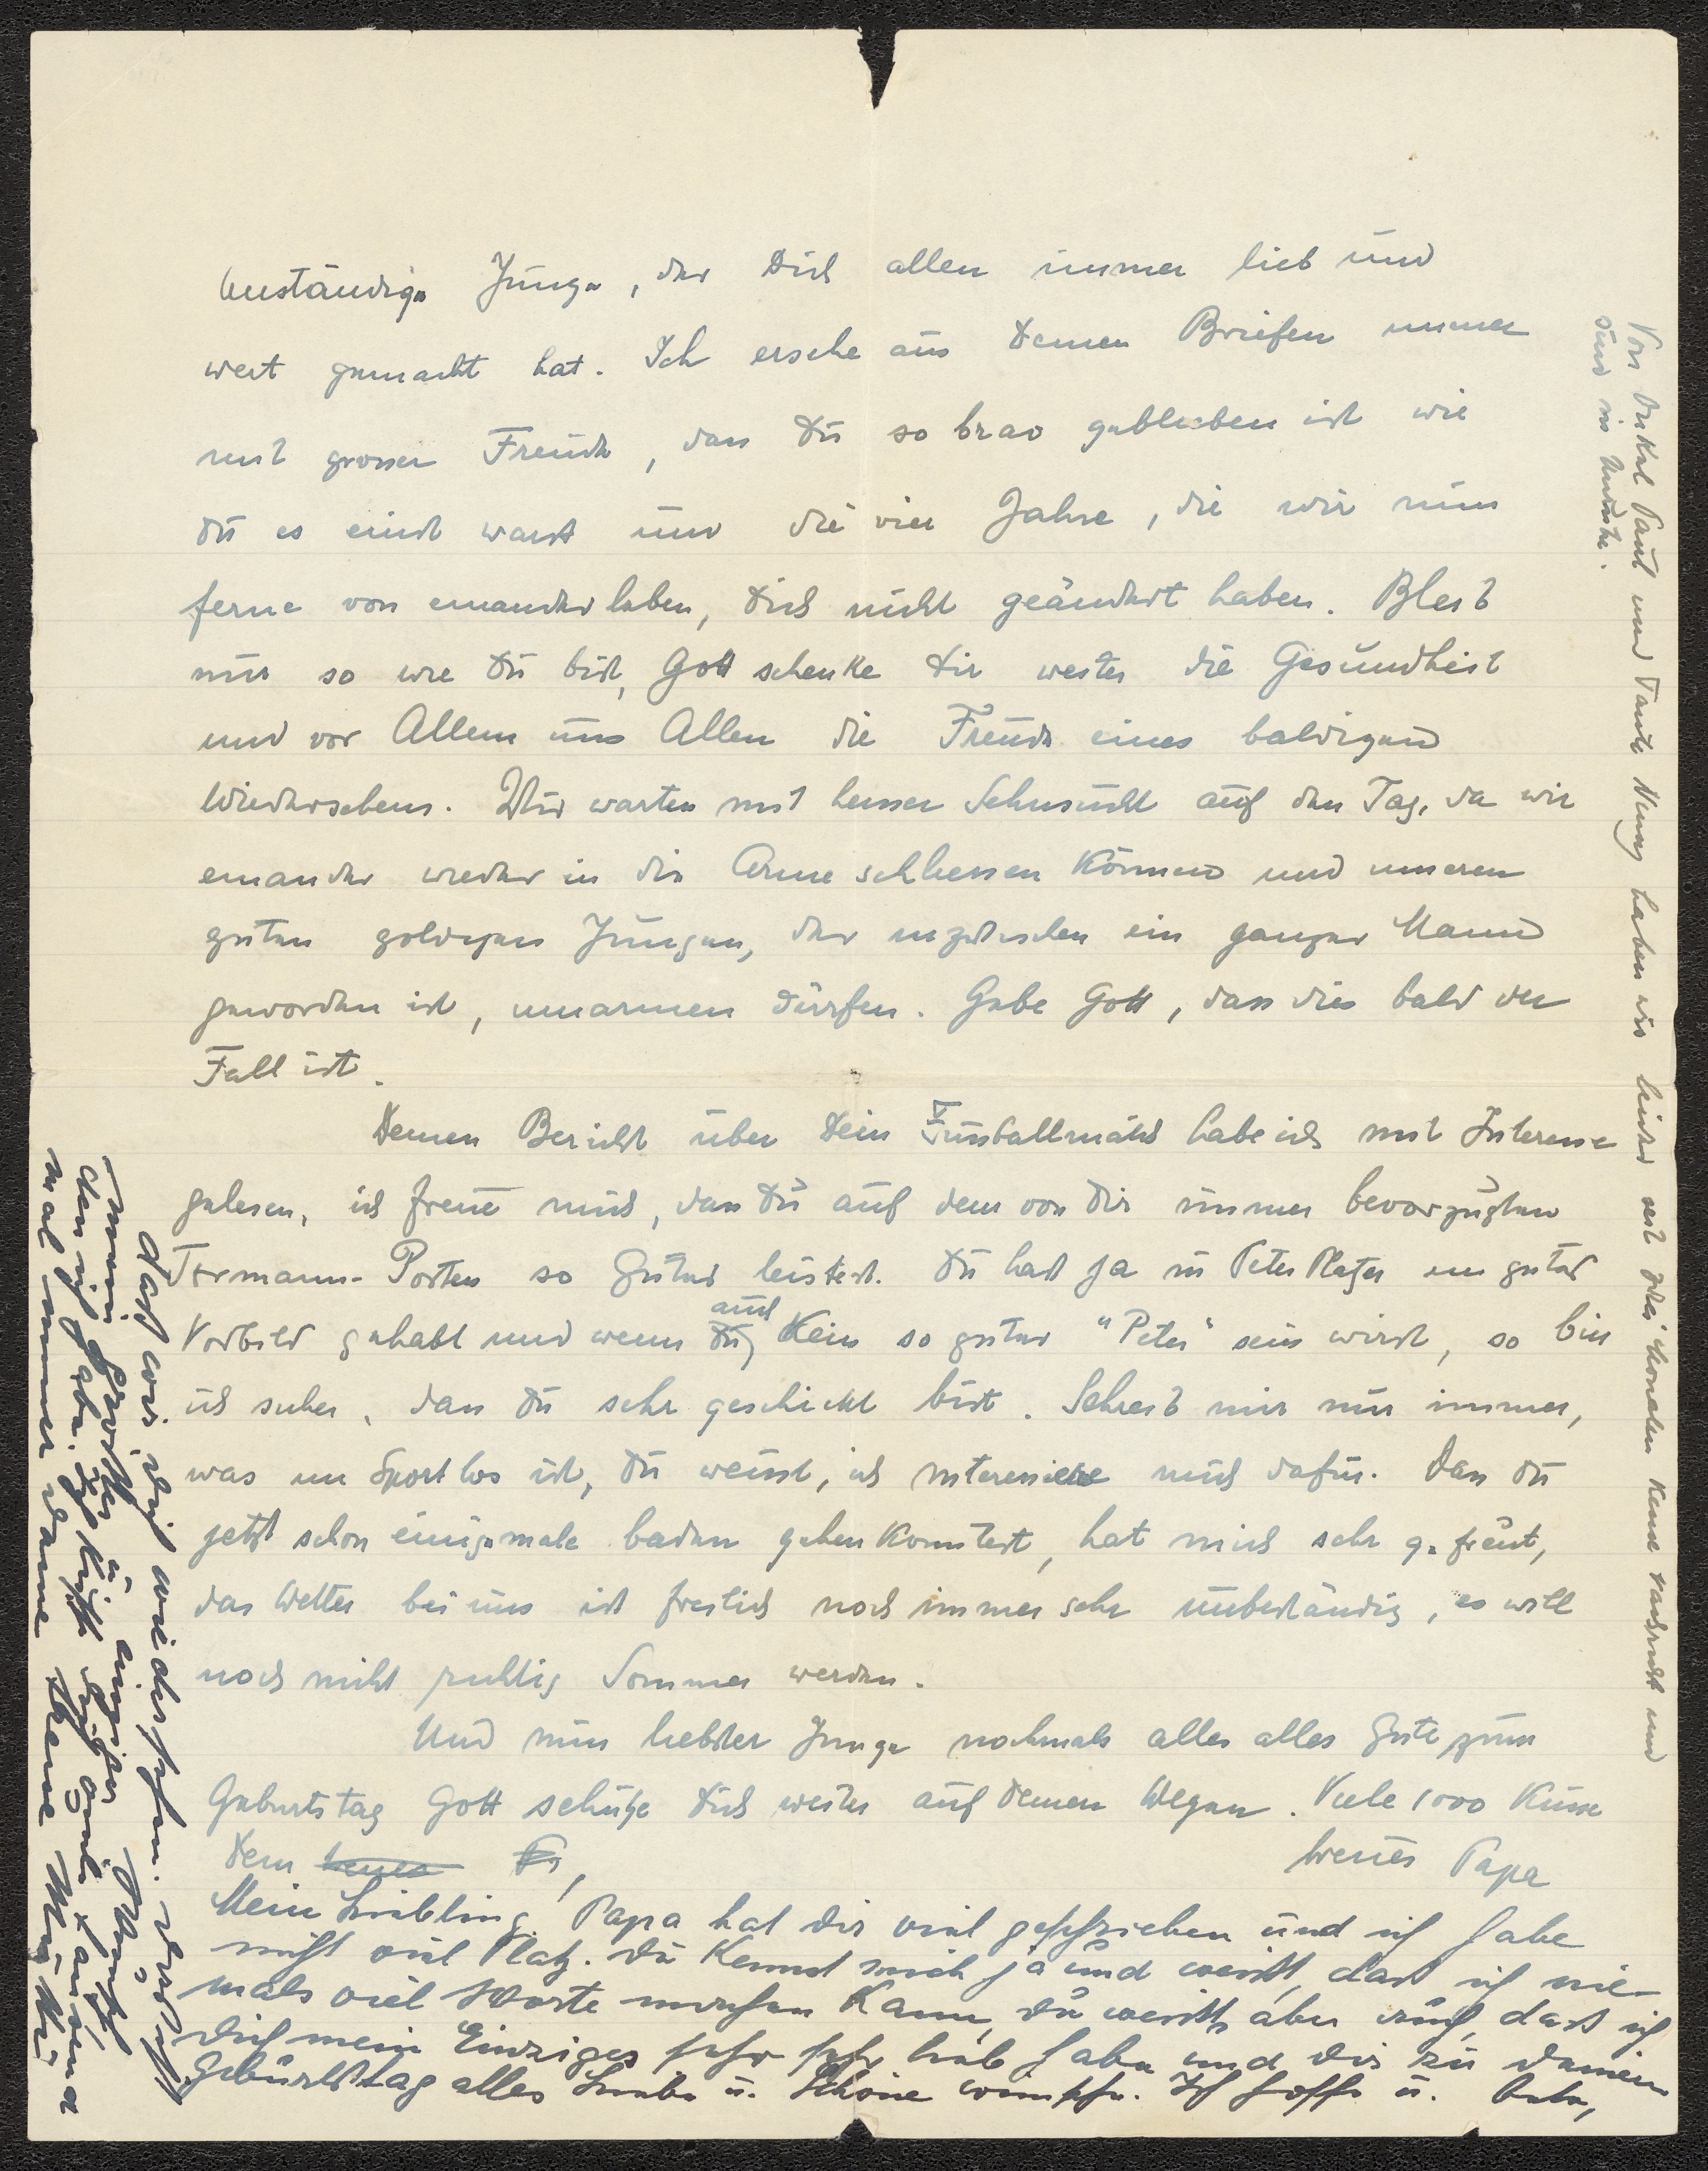 anständige Junge, der Dich allen immer lieb und
wert gemacht hat. Ich ersehe aus Deinen Briefen immer
mit grosser Freude, dass Du so brav geblieben ist wie
Du es einst warst und die vier Jahre, die wir nun
ferne von einander leben, Dich nicht geändert haben. Bleib
nur so wie Du bist, Gott schenke Dir weiter die Gesundheit
und vor Allem uns Allen die Freude eines baldigen
Wiedersehens. Wir warten mit heisser Sehnsucht auf den Tag, da wir
einander wieder in die Arme schliessen können und unseren
guten goldigen Jungen, der inzwischen ein ganzer Mann
geworden ist, umarmen dürfen. Gebe Gott, dass dies bald der
Fall ist.
Deinen Bericht über Dein Fussballmatch habe ich mit Interesse
gelesen, ich freue mich, dass Du auf dem von Dir immer bevorzugten
Tormann-Posten so Gutes leistest. Du hast ja in Peter Platzer ein gutes
Vorbild gehabt und wenn Du auch kein so guter "Peter" sein wirst, so bin
ich sicher, dass Du sehr geschickt bist. Schreib mir nur immer,
was im Sport los ist, Du weisst, ich interessiere mich dafür. Dass Du
jetzt schon einigemale baden gehen konntest, hat mich sehr gefreut,
das Wetter bei uns ist freilich noch immer sehr unbeständig, es will
noch nicht richtig Sommer werden.
Und nun liebster Junge nochmals alles alles Gute zum
Geburtstag Gott schütze Dich weiter auf Deinen Wegen. Viele 1000 Küsse
Dein treuer Papa
Mein Liebling! Papa hat dir viel geschrieben und ich habe
nicht viel Platz. Du kennst mich ja und weisst, dass ich nie-
mals viel Worte machen kann, du weisst aber auch, dass ich
dich mein Einziges sehr sehr lieb habe und dir zu deinem
Geburtstag alles Liebe u. Schöne wünsche. Ich hoffe u. bete,
dass wir dich wiedersehen.
mein grösster u. einziger Wunsch
den ich habe. Ich küsse dich viele tausend
mal immer deine treue Mutter
Von Onkel Paul und Tante haben wir leider seit zwei Monaten keine Nachricht und
sind in Unruhe.